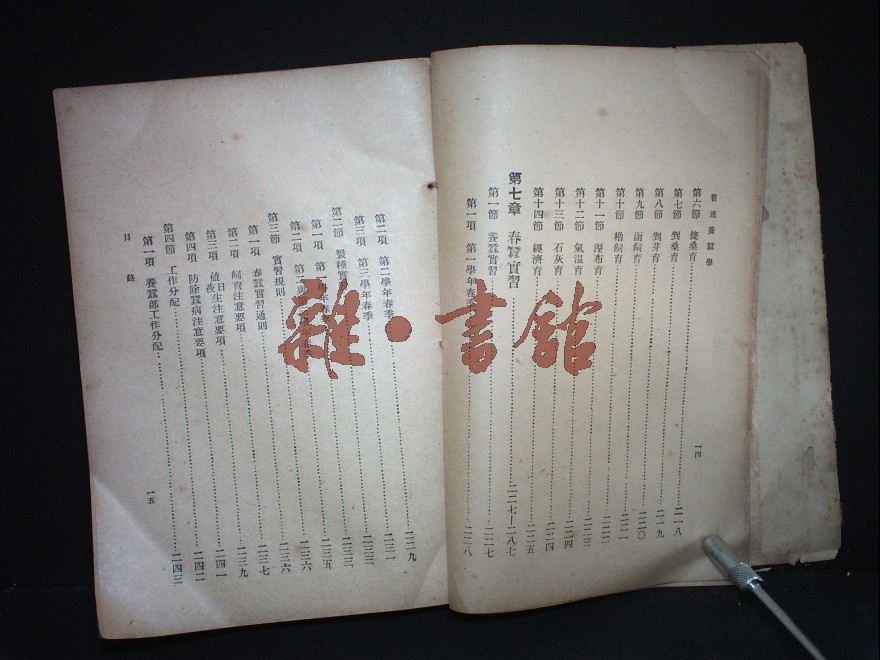 普通養蠶學
一四
第六節 條桑育 二一八
第七節 剉桑育 二一九
第八節 剉芽育 二二〇
第九節 函飼育 二二一
第十節 櫓飼育 二二二
第十一節 濕布育 二二三
第十二節 氣溫育 二二四
第十三節 石灰育 二二四
第十四節 經濟育 二二五
第七章 春蠶實習 二二七—二八七
第一節 養蠶實習 二二七
第一項 第一學年春季 二二八
第二項 第二學年春季 二二九
第三項 第三學年春季 二三一
第二節 製種實 二三三
第一項 第 學年春 二三三
第二項 第 二三五
第三節 實習規則 二三六
第一項 春蠶實習通則 二三六
第二項 飼育注意要項 二三七
第三項 值日生注意要項 二三九
第四項 防除蠶病注意要項 二四一
第四節 工作分配 二四二
第一項 養蠶部工作分配 二四三
目錄
一五
雜·書館